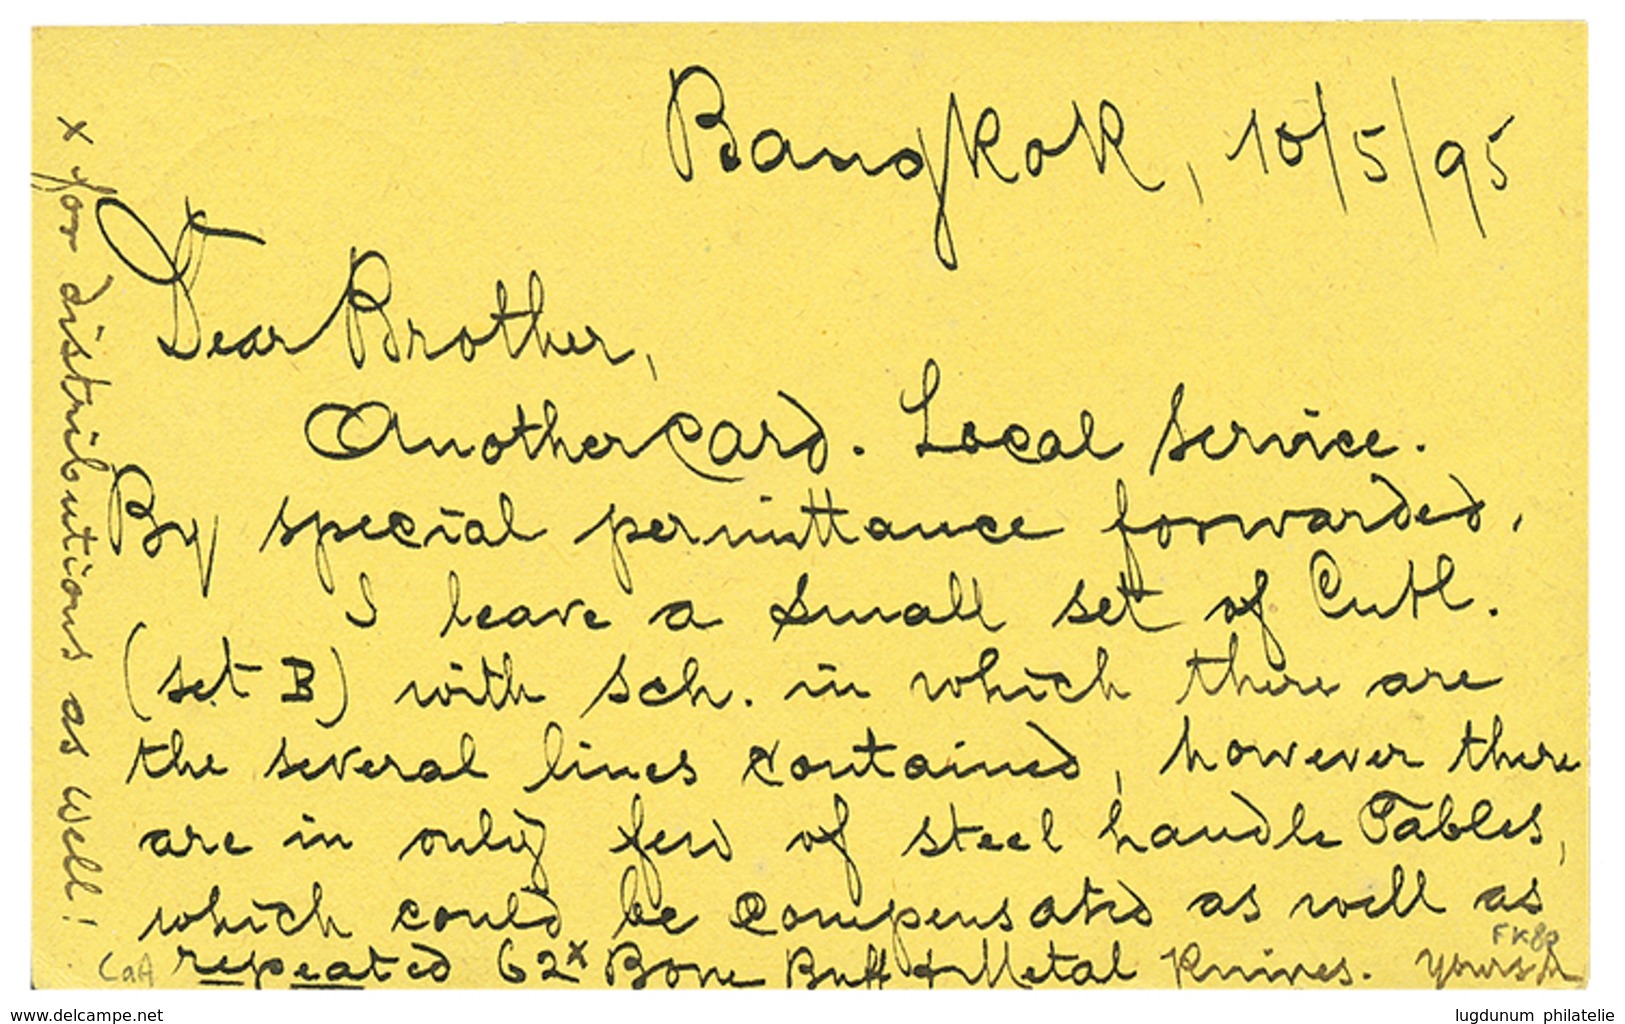 Bangkok, 10/5/95
Dear Brother,
Another Card. Local Service.
By special permittance forwarded.
I leave a small set of Cutl.
(set B) with sch. in which there are
the several lines contained, however there
are in only few of steel handle Tables,
which could be compensated as well as
repeated 62x Bone Buff & Metal Knives. Yours
x for distributions as well!
CaA
FK80
www.delcampe.net
lugdunum philatelie